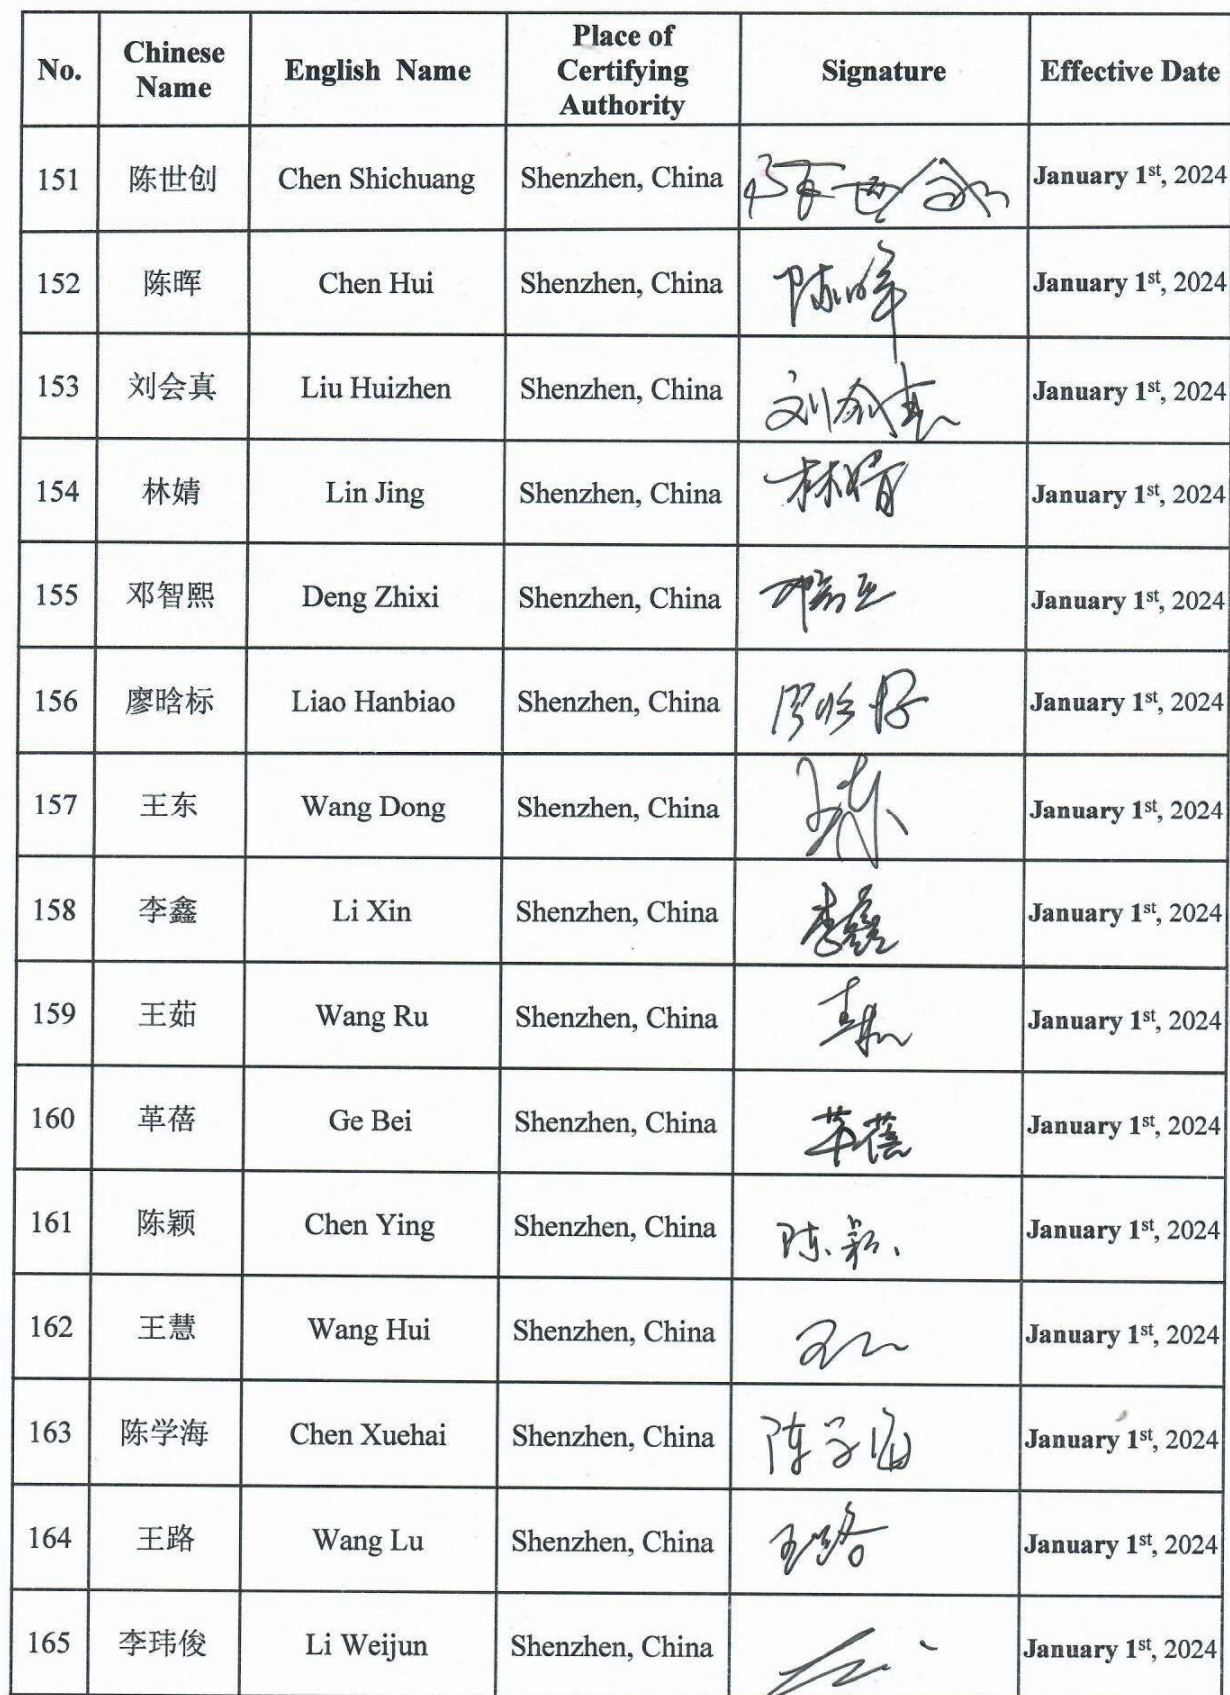 No. Chinese Name English Name Place of Certifying Authority Signature Effective Date
151 陈世创 Chen Shichuang Shenzhen, China 陈世创 January 1st, 2024
152 陈晖 Chen Hui Shenzhen, China 陈晖 January 1st, 2024
153 刘会真 Liu Huizhen Shenzhen, China 刘会真 January 1st, 2024
154 林婧 Lin Jing Shenzhen, China 林婧 January 1st, 2024
155 邓智熙 Deng Zhixi Shenzhen, China January 1st, 2024
156 廖晗标 Liao Hanbiao Shenzhen, China January 1st, 2024
157 王东 Wang Dong Shenzhen, China January 1st, 2024
158 李鑫 Li Xin Shenzhen, China 李鑫 January 1st, 2024
159 王茹 Wang Ru Shenzhen, China January 1st, 2024
160 革蓓 Ge Bei Shenzhen, China 革蓓 January 1st, 2024
161 陈颖 Chen Ying Shenzhen, China 陈颖 January 1st, 2024
162 王慧 Wang Hui Shenzhen, China January 1st, 2024
163 陈学海 Chen Xuehai Shenzhen, China 陈学海 January 1st, 2024
164 王路 Wang Lu Shenzhen, China 王路 January 1st, 2024
165 李玮俊 Li Weijun Shenzhen, China January 1st, 2024